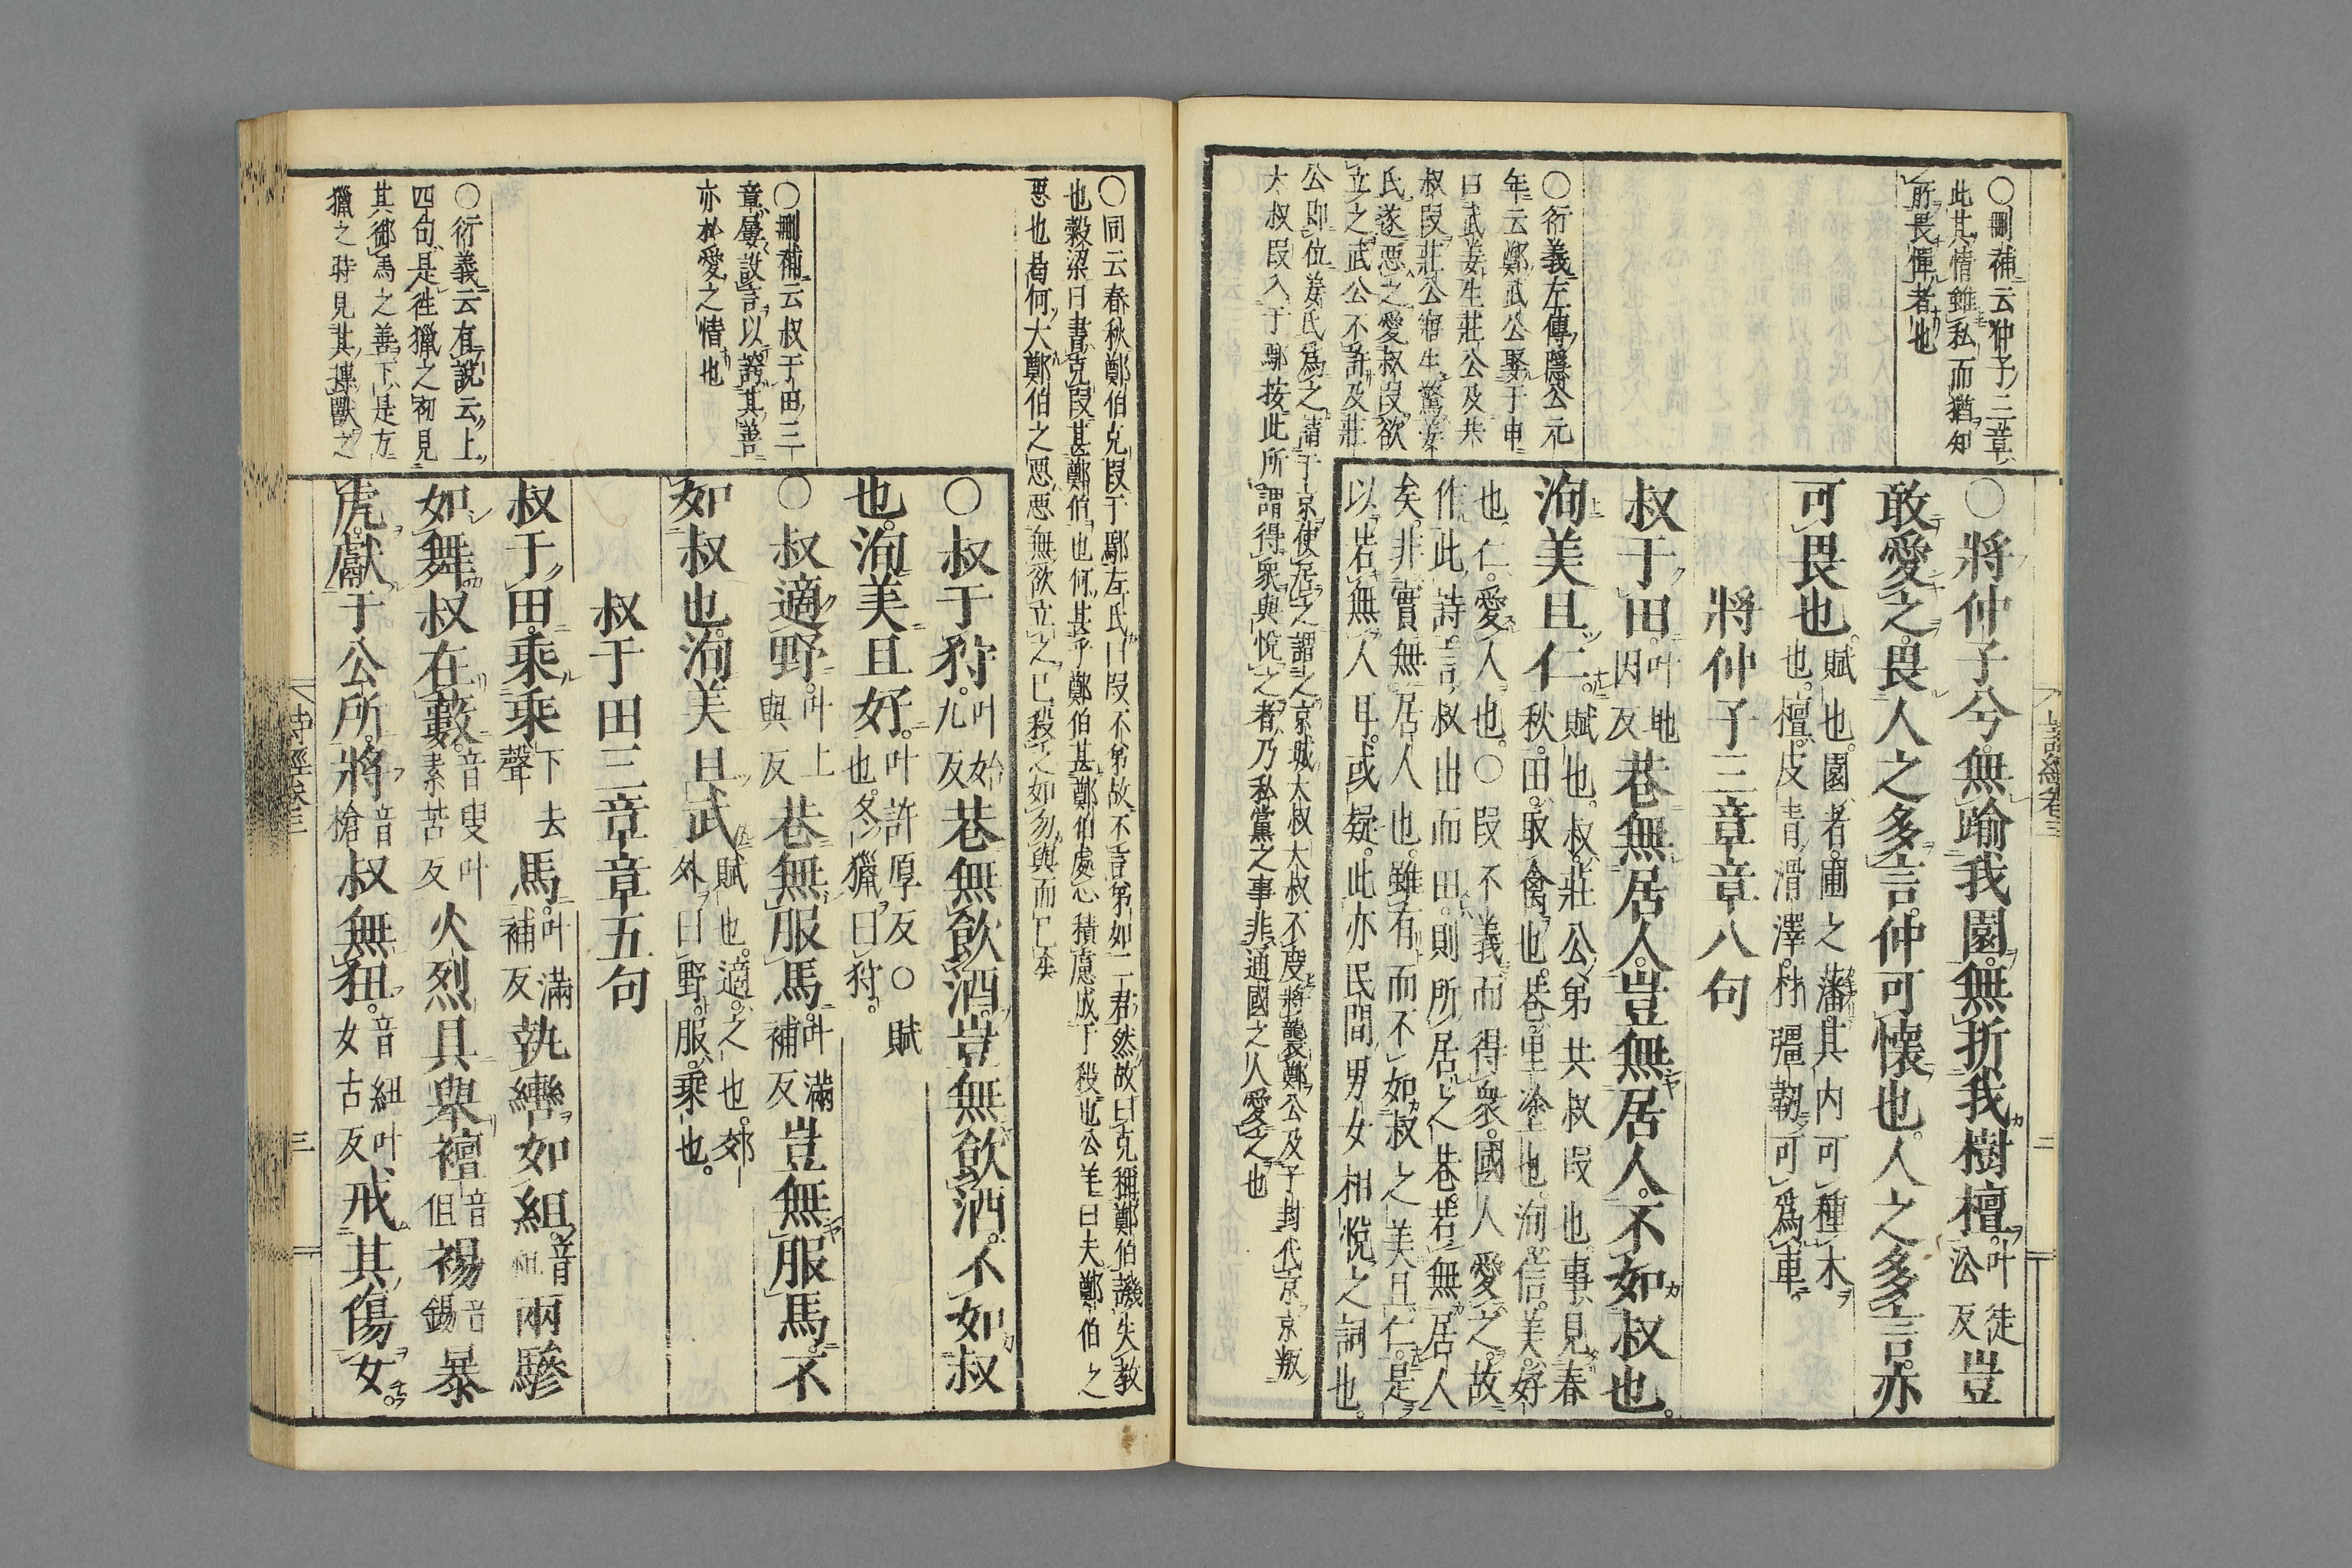 ○刪補云仲子三章
此其情雖私而猶知
所畏憚者也
○衍義左傳隱公元
年云鄭武公娶于申
曰武姜生莊公及共
叔段莊公寤生驚姜
氏遂惡之愛叔段欲
立之武公不許及莊
公卽位姜氏爲之請于京使居之謂之京城大叔大叔不度將襲鄭公及子封代京京叛
大叔段入于鄢按此所謂得衆與悅之者乃私黨之事非通國之人愛之也
○將仲子兮無踰我園無折我樹檀叶徒㳂反豈
敢愛之畏人之多言仲可懷也人之多言亦
可畏也賦也園者圃之藩其内可種木
也檀皮青滑澤材彊韌可爲車
將仲子三章章八句
叔于田叶地因反巷無居人豈無居人不如叔也
洵美且仁賦也叔莊公弟共叔段也事見春
秋田取禽也巷里塗也洵信美好
也仁愛人也○段不義而得衆國人愛之故
作此詩言叔出而田則所居之巷若無居人
矣非實無居人也雖有而不如叔之美且仁是
以若無人耳或疑此亦民間男女相悅之詞也
詩經卷三
二
○同云春秋鄭伯克段于鄢左氏曰段不弟故不言弟如二君然故曰克稱鄭伯譏失敎
也穀梁曰書克段甚鄭伯也何甚乎鄭伯甚鄭伯處心積慮成于殺也公羊曰夫鄭伯之
惡也曷何大鄭伯之惡惡無欲立之已殺之如勿與而已矣
○刪補云叔于田三
章屢設言以誇其善
亦於愛之情也
○衍義云有說云上
四句是徃獵之初見
其御馬之善下是方
獵之時見其摶獸之
○叔于狩叶始九反巷無飮酒豈無飮酒不如叔
也洵美且好叶許厚反○賦
也冬獵曰狩
○叔適野叶上與反巷無服馬叶滿補反豈無服馬不
如叔也洵美且武賦也適之也郊
外曰野服乘也
叔于田三章章五句
叔于田乘乘下去聲馬叶滿補反執轡如組音祖兩驂
如舞叔在藪音叟叶素苦反火烈具舉襢音但裼音錫暴
虎獻于公所將音槍叔無狃音紐叶女古反戒其傷女
詩經卷三
三